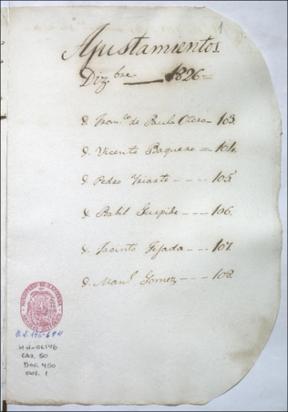 Ajustamientos
Dizbre 1826
d. Franco de Paula Otero - 103.
d. Vicente Baquero - 104.
d. Pedro Yriarte - - - - 105
d. - - - 106.
d. Jacinto Tejada - - - - 107.
d. Manl Gomez - - - - 108
H-H-OL146
CAJ. 50
DOC. 450
FOL. 1